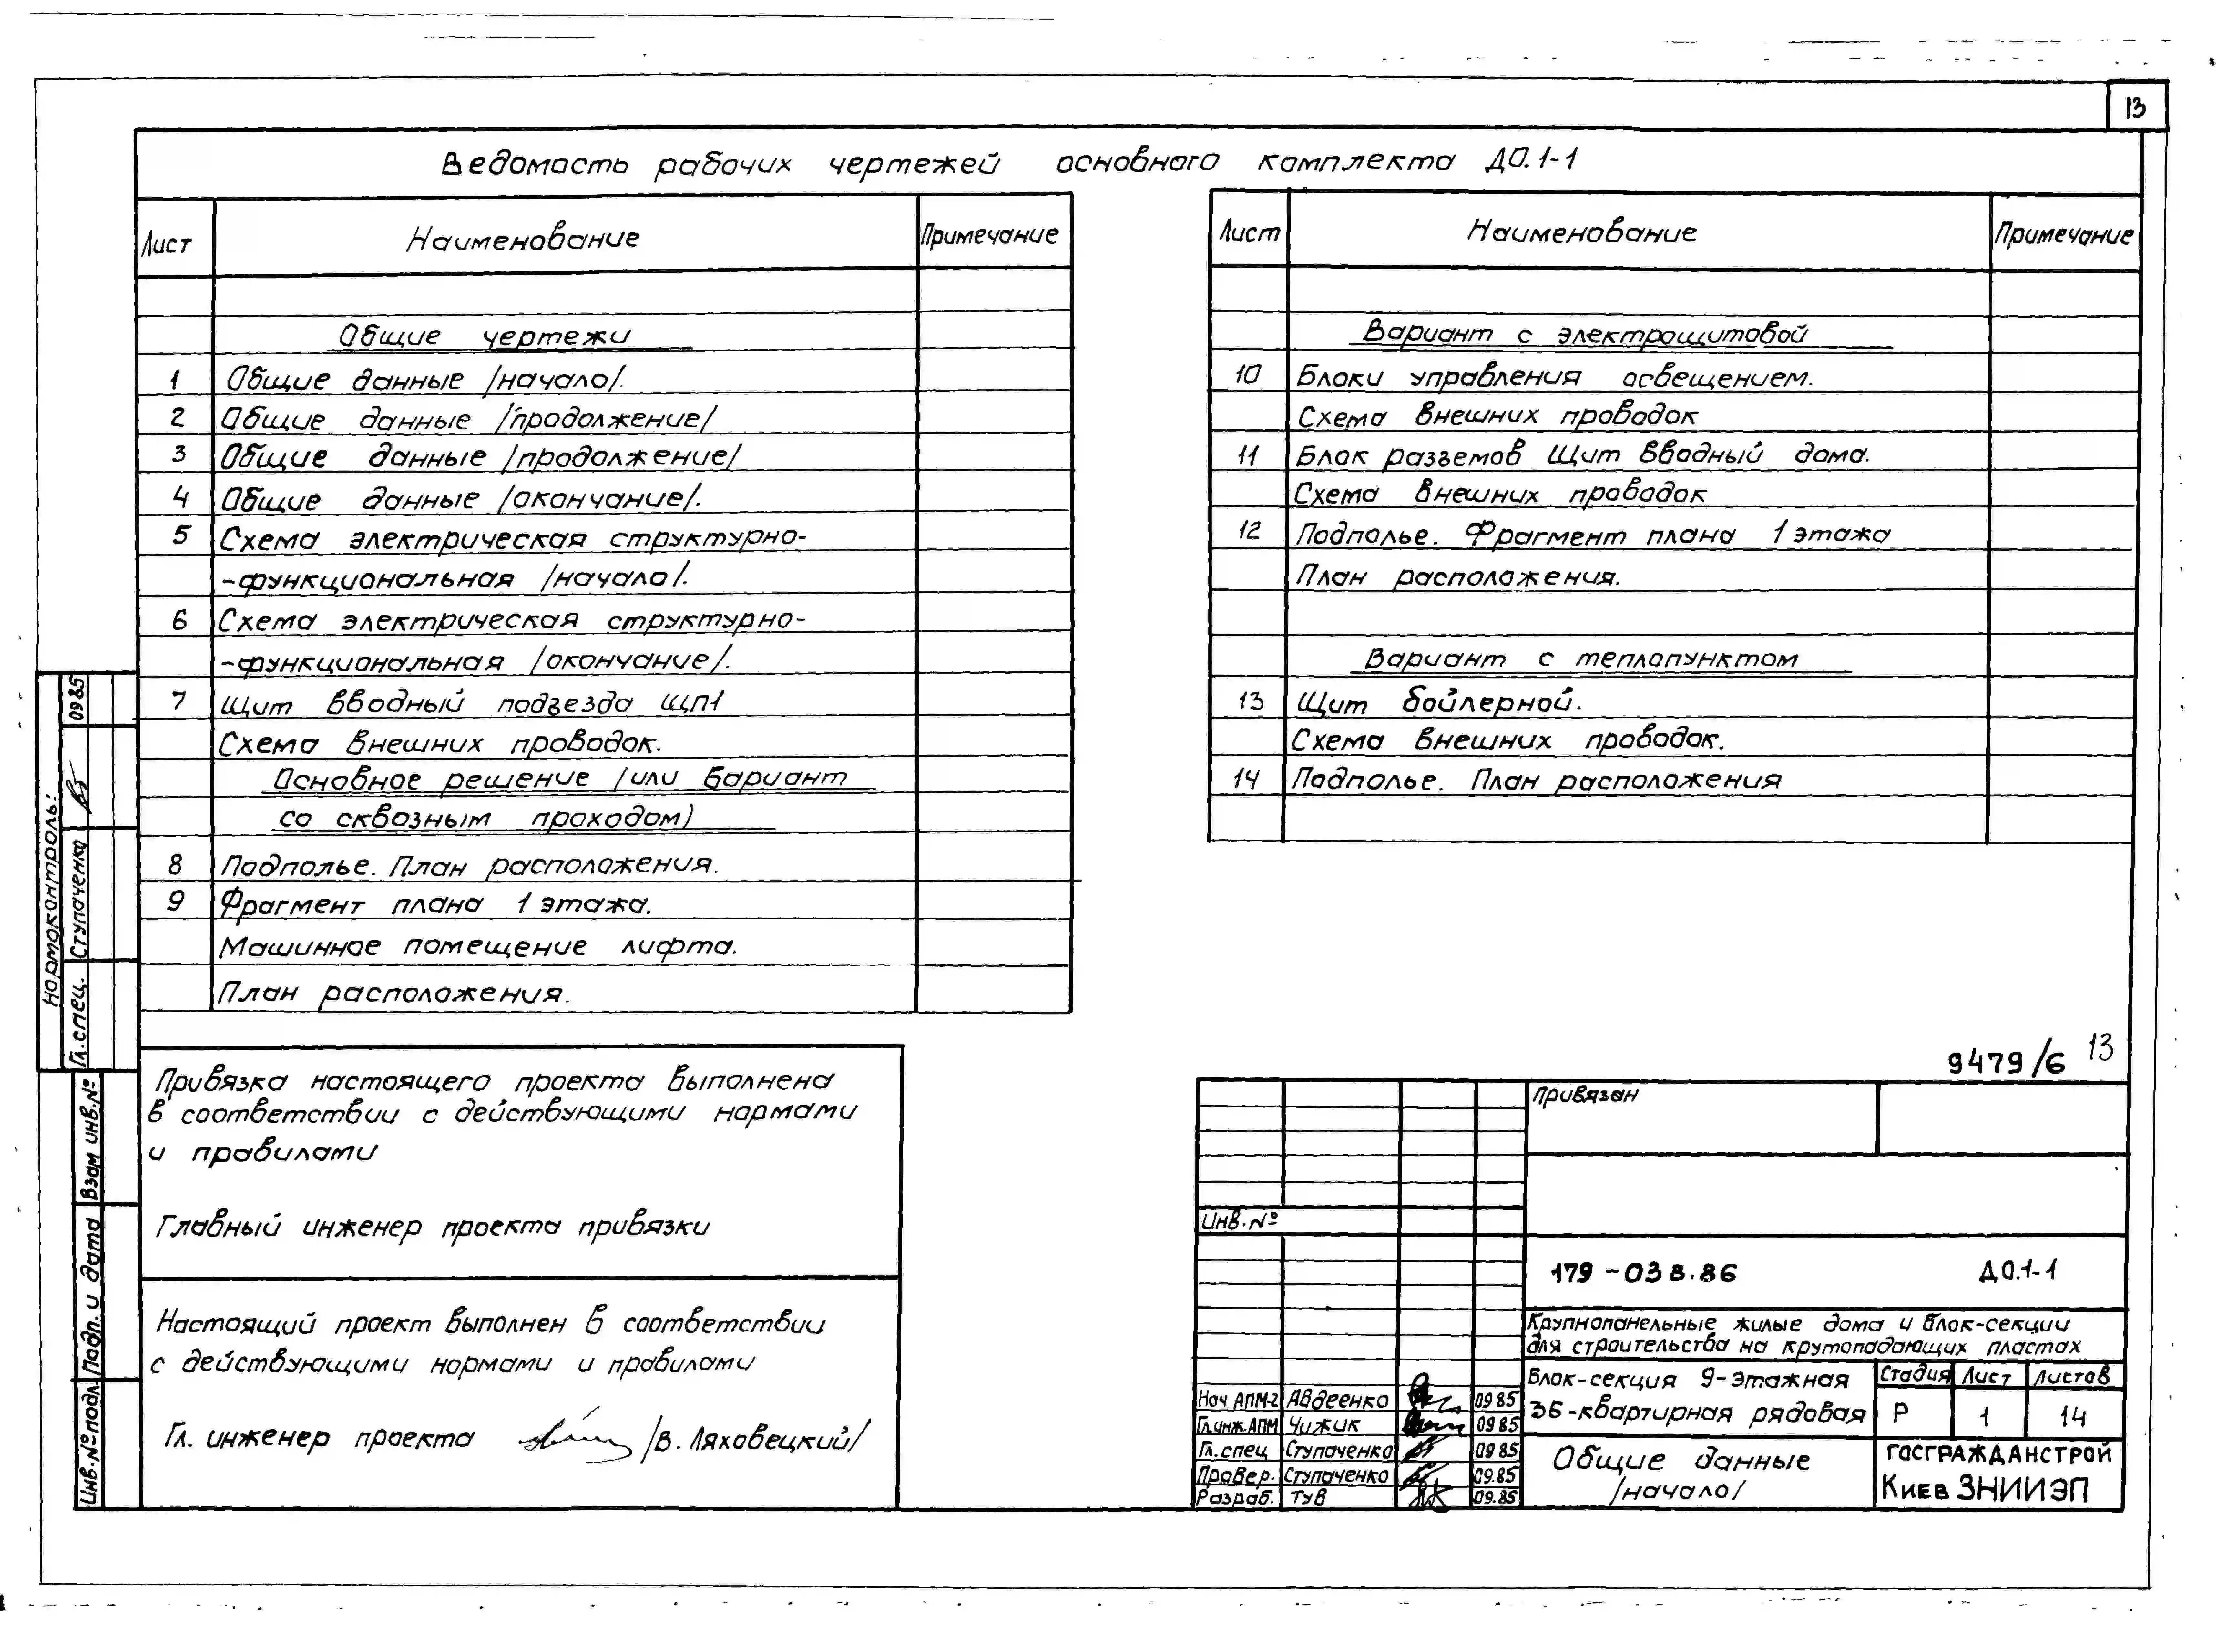 13
Ведомость рабочих чертежей основного комплекта ДО.1-1
Лист Наименование Примечание
Общие чертежи
1 Общие данные /начало/.
2 Общие данные /продолжение/
3 Общие данные /продолжение/
4 Общие данные /окончание/.
5 Схема электрическая структурно-
-функциональная /начало/.
6 Схема электрическая структурно-
-функциональная /окончание/.
7 Щит вводный подъезда ЩП1
Схема внешних проводок.
Основное решение /или вариант
со сквозным проходом)
8 Подполье. План расположения.
9 Фрагмент плана 1 этажа.
Машинное помещение лифта.
План расположения.
Лист Наименование Примечание
Вариант с электрощитовой
10 Блоки управления освещением.
Схема внешних проводок
11 Блок разъемов Щит вводный дома.
Схема внешних проводок
12 Подполье. Фрагмент плана 1 этажа
План расположения.
Вариант с теплопунктом
13 Щит бойлерной.
Схема внешних проводок.
14 Подполье. План расположения
Нормоконтроль:
Гл. спец. Ступаченко 0985
Взам инв.№
Подп. и дата
Инв.№ подл.
Привязка настоящего проекта выполнена
в соответствии с действующими нормами
и правилами
Главный инженер проекта привязки
Настоящий проект выполнен в соответствии
с действующими нормами и правилами
Гл. инженер проекта /В. Ляховецкий/
9479/6 13
Привязан
Инв.№
179-03 в.86 ДО.1-1
Крупнопанельные жилые дома и блок-секции
для строительства на крутопадающих пластах
Блок-секция 9-этажная
36-квартирная рядовая
Стадия Лист Листов
Р 1 14
Нач АПМ-2 Авдеенко 0985
Гл.инж.АПМ Чижик 0985
Гл.спец Ступаченко 0985
Провер. Ступаченко 09.85
Разраб. Тув 09.85
Общие данные
/начало/
ГОСГРАЖДАНСТРОЙ
Киев ЗНИИЭП